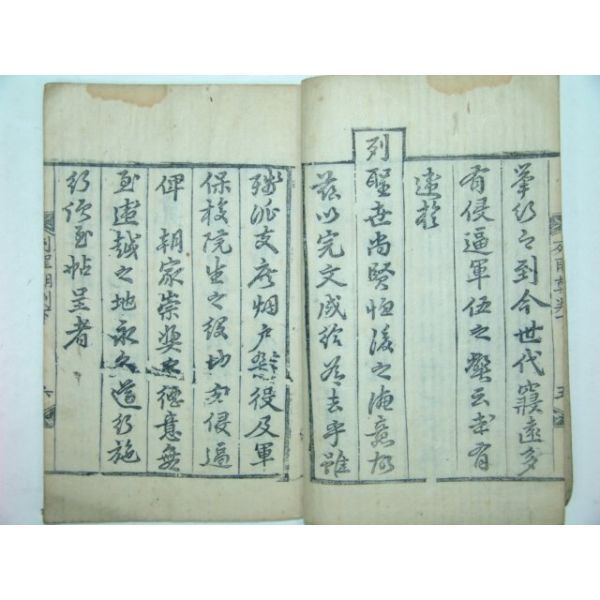 筆行之到今世代寢遠多
有侵逼軍伍之弊云
違於
列聖世尚賢恒後之德意故
茲以完文成給為去乎雖
殘派支庶烟戶雜役及軍
保校院生之役切勿侵逼
俾朝家崇奬之德意無
至違越之地永久遵行施
行須至帖呈者